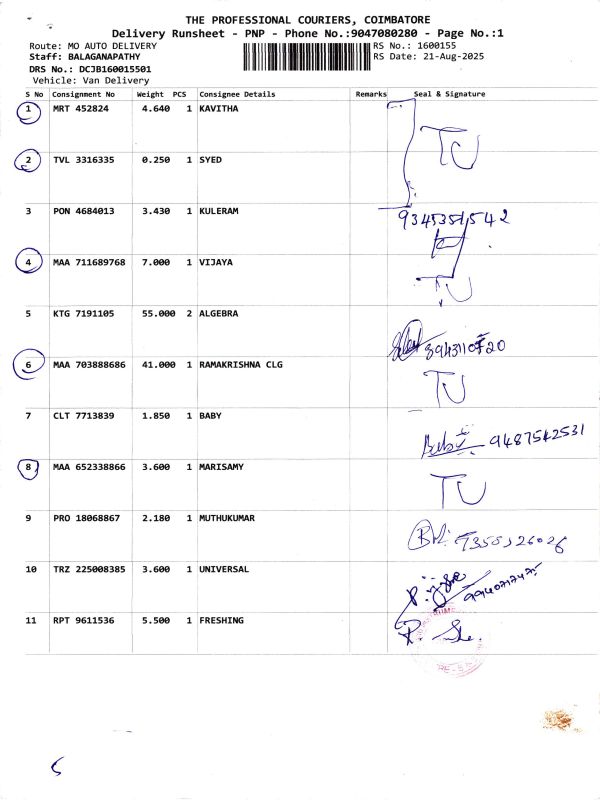 THE PROFESSIONAL COURIERS, COIMBATORE
Delivery Runsheet - PNP - Phone No.:9047080280 - Page No.:1
Route: MO AUTO DELIVERY RS No.: 1600155
Staff: BALAGANAPATHY RS Date: 21-Aug-2025
DRS No.: DCJB160015501
Vehicle: Van Delivery
S No Consignment No Weight PCS Consignee Details Remarks Seal & Signature
1 MRT 452824 4.640 1 KAVITHA TU
2 TVL 3316335 0.250 1 SYED
3 PON 4684013 3.430 1 KULERAM
4 MAA 711689768 7.000 1 VIJAYA TU
5 KTG 7191105 55.000 2 ALGEBRA
6 MAA 703888686 41.000 1 RAMAKRISHNA CLG TU
7 CLT 7713839 1.850 1 BABY 9487542531
8 MAA 652338866 3.600 1 MARISAMY TU
9 PRO 18068867 2.180 1 MUTHUKUMAR
10 TRZ 225008385 3.600 1 UNIVERSAL
11 RPT 9611536 5.500 1 FRESHING